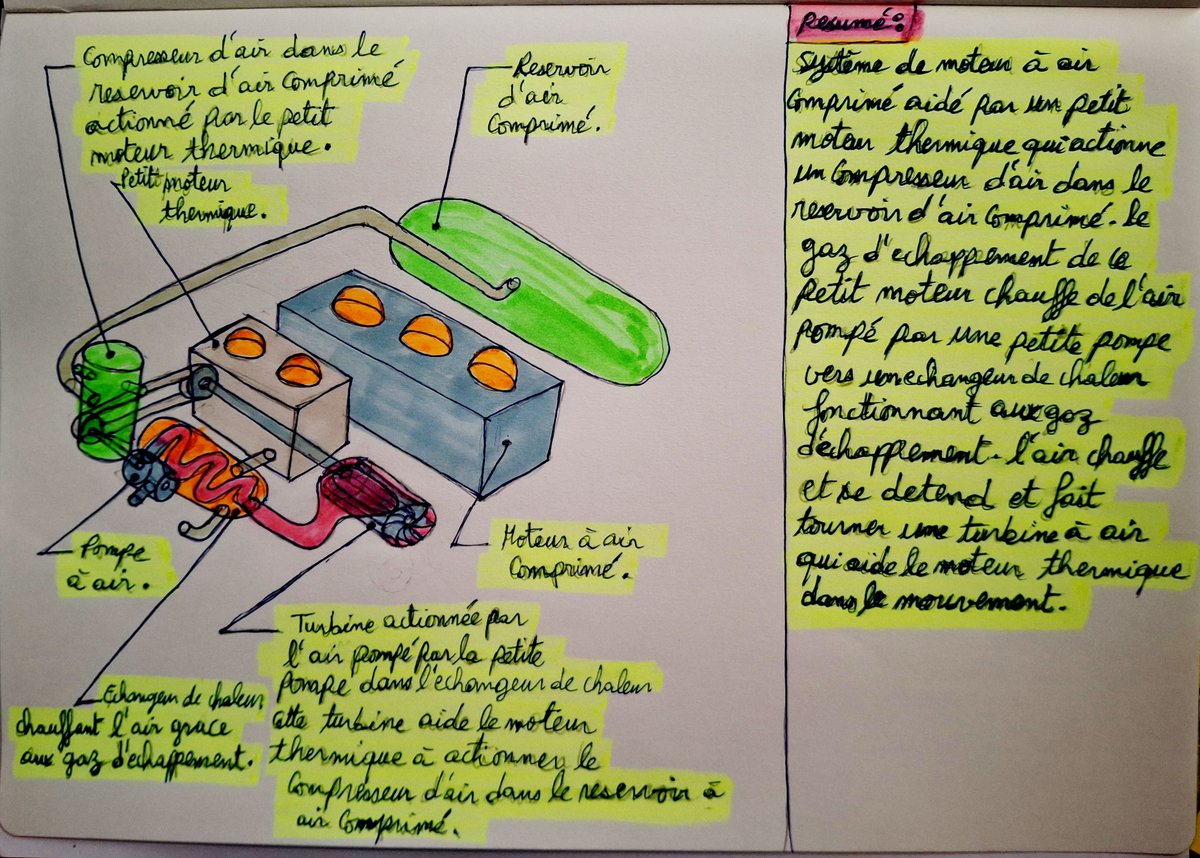 Compresseur d'air dans le
reservoir d'air comprimé
actionné par le petit
moteur thermique.
Petit moteur
thermique.
Reservoir
d'air
Comprimé.
Pompe
à air.
Moteur à air
Comprimé.
Echangeur de chaleur
chauffant l'air grace
aux gaz d'echappement.
Turbine actionnée par
l'air pompé par la petite
pompe dans l'echangeur de chaleur
Cette turbine aide le moteur
thermique à actionner le
Compresseur d'air dans le reservoir à
air Comprimé.
Resumé:
Système de moteur à air
Comprimé aidé par un petit
moteur thermique qui actionne
un Compresseur d'air dans le
reservoir d'air Comprimé. le
gaz d'echappement de ce
petit moteur chauffe de l'air
pompé par une petite pompe
vers un echangeur de chaleur
fonctionnant aux gaz
d'échappement. l'air chauffe
et se detend et fait
tourner une turbine à air
qui aide le moteur thermique
dans le mouvement.